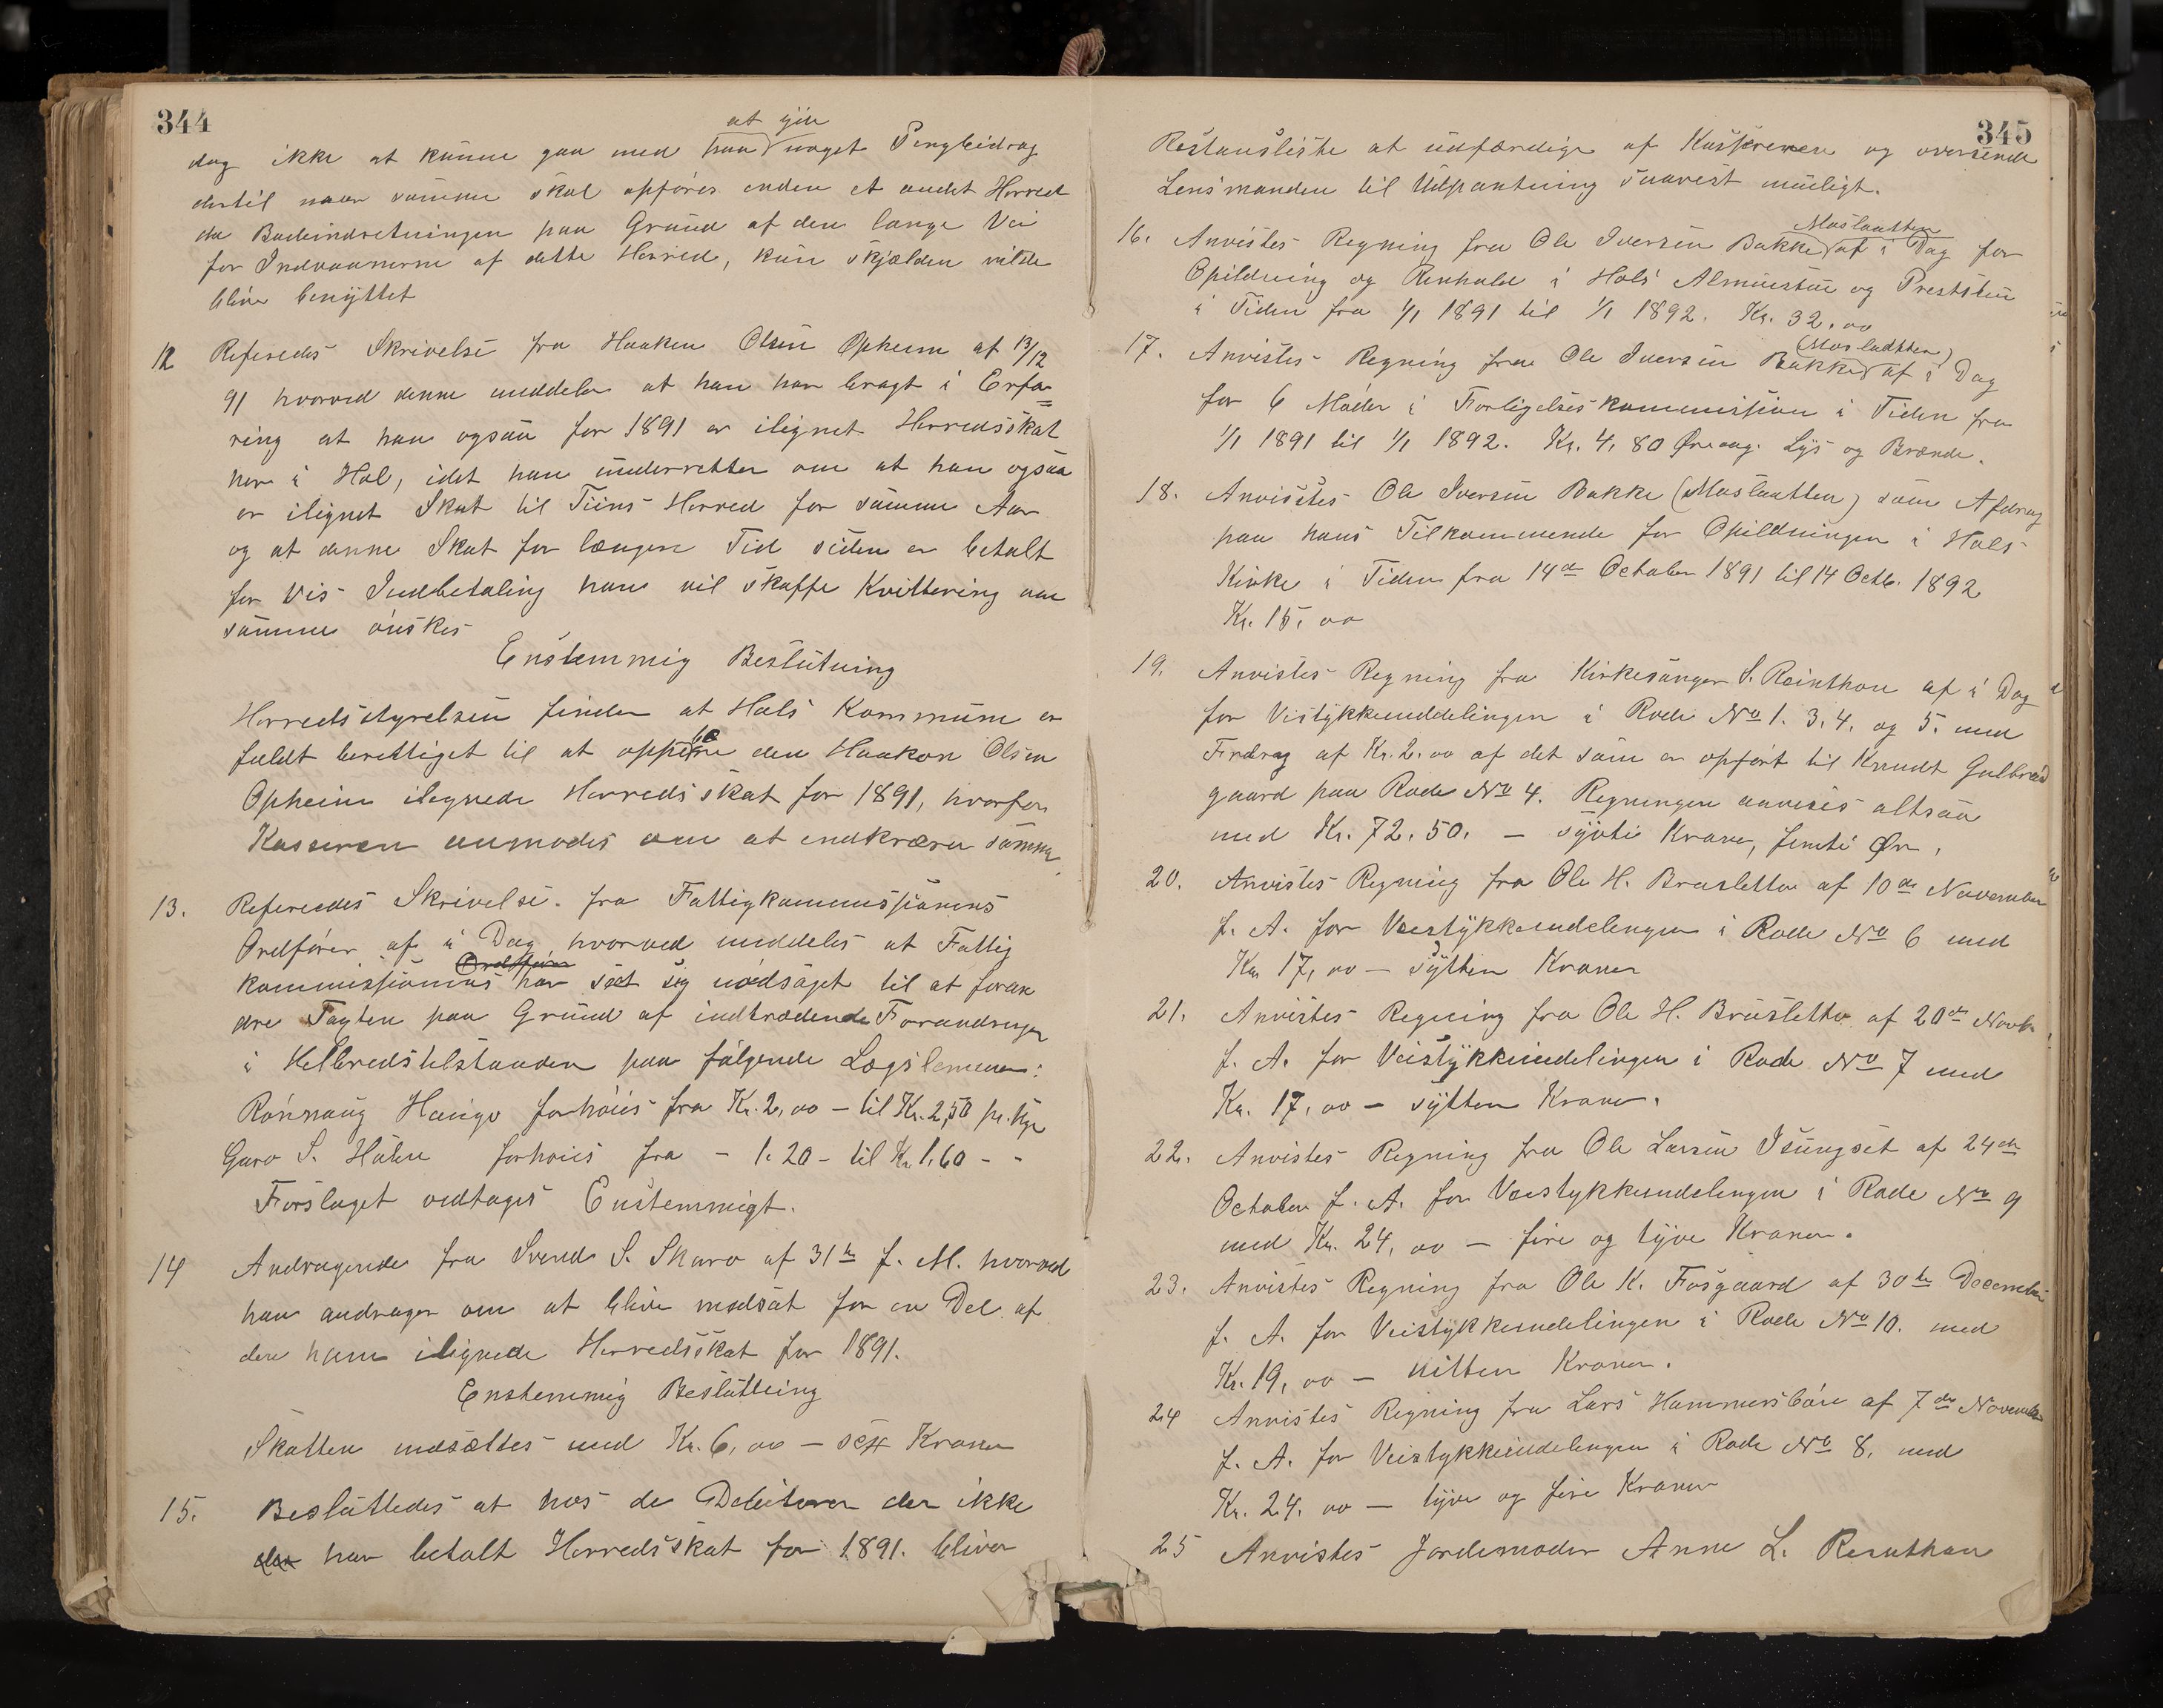 344
at give
dag ikke at kunne gaa med paa noget Pengebidrag
dertil naar samme skal opføres inden et andet Herred
da Badeindretningen paa Grund af den lange Vei
for Indvaanerne af dette Herred, kun skjælden vilde
blive benyttet
12 Refereredes Skrivelse fra Haaken Olsen Opheim af 13/12
91 hvorved denne meddeler at han har bragt i Erfa=
ring at han ogsaa for 1891 er ilignet Herredsskat
her i Hol, idet han underretter om at han ogsaa
er ilignet Skat til Herred for samme Aar
og at denne Skat for længere Tid siden er betalt
for vis Indbetaling han vil skaffe Kvittering om
samme ønskes
Enstemmig Beslutning
Herredsstyrelsen finder at Hols Kommune er
fuldt berettiget til at oppebære den Haakon Olsen
Opheim ilignede Herredsskat for 1891, hvorfor
Kasseren anmodes om at indkræve samme.
13. Refereredes Skrivelse fra Fattigkommissionens
Ordfører af i Dag, hvorved meddeles at Fattig
kommissionens har seet sig nødsaget til at foran
dre Taxten paa Grund af indtrædende Forandringer
i Helbredstilstanden paa følgende Lægslemmer:
Rønnaug Haugo forhøies fra Kr. 2,00 – til Kr. 2,50 pr. Uge
Guro S. forhøies fra – 1.20 – til Kr 1.60 – -
Forslaget vedtages Enstemmigt.
14 Andragende fra Svend S. Skaro af 31te f. M. hvorved
han andrager om at blive nedsat for en Del af
den ham ilignede Herredsskat for 1891.
Enstemmig Beslutning
Skatten nedsættes med Kr. 6,00 – sex Kroner
15. Besluttedes at hos de Debitorer der ikke
har betalt Herredsskat for 1891. bliver
345
Restansliste at udfærdige af Kassereren og oversende
Lensmanden til Udpantning snarest muligt.
Moslaatten
16. Anvistes Regning fra Ole Iversen Bakke af i Dag for
Opildning og Renhold i Hols Almuestue og Prestestue
i Tiden fra 1/1 1891 til 1/1 1892. Kr. 32.00
(Moslaatten)
17. Anvistes Regning fra Ole Iversen Bakke af i Dag
for 6 Møder i Forligelseskommission i Tiden fra
1/1 1891 til 1/1 1892. Kr. 4,80 Øre og Lys og Brænde.
18. Anvistes Ole Iversen Bakke (Moslaatten) som Afdrag
paa hans Tilkommende for Opildningen i Hols
Kirke i Tiden fra 14de October 1891 til 14 Octb. 1892
Kr. 15,00
19. Anvistes Regning fra Kirkesanger S. Reinthon af i Dag
for Veistykkeinddelingen i Rode No 1. 3. 4. og 5. med
Fradrag af Kr. 2.00 af det som er opført til Knudt Gulbrand
gaard paa Rode No 4. Regningen anvises altsaa
med Kr. 72.50. – sytti Kroner, femti Øre.
20. Anvistes Regning fra Ole H. Brusletto af 10de November
f. A. for Veistykkeindelingen i Rode No 6 med
Kr 17,00 – sytten Kroner
21. Anvistes Regning fra Ole H. Brusletto af 20de Novb.
f. A. for Veistykkeindelingen i Rode No 7 med
Kr. 17,00 – sytten Kroner.
22. Anvistes Regning fra Ole Larsen Isungset af 24de
October f. A. for Veistykkeindelingen i Rode No 9
med Kr. 24,00 – fire og tyve Kroner.
23. Anvistes Regning fra Ole K. Fosgaard af 30te December
f. A. for Veistykkeindelingen i Rode No 10. med
Kr. 19,00 – nitten Kroner.
24 Anvistes Regning fra Lars Hammersbøen af 7de November
f. A. for Veistykkeindelingen i Rode No 8. med
Kr. 24.00 – tyve og fire Kroner
25 Anvistes Jordemoder Anne L. Reinthon